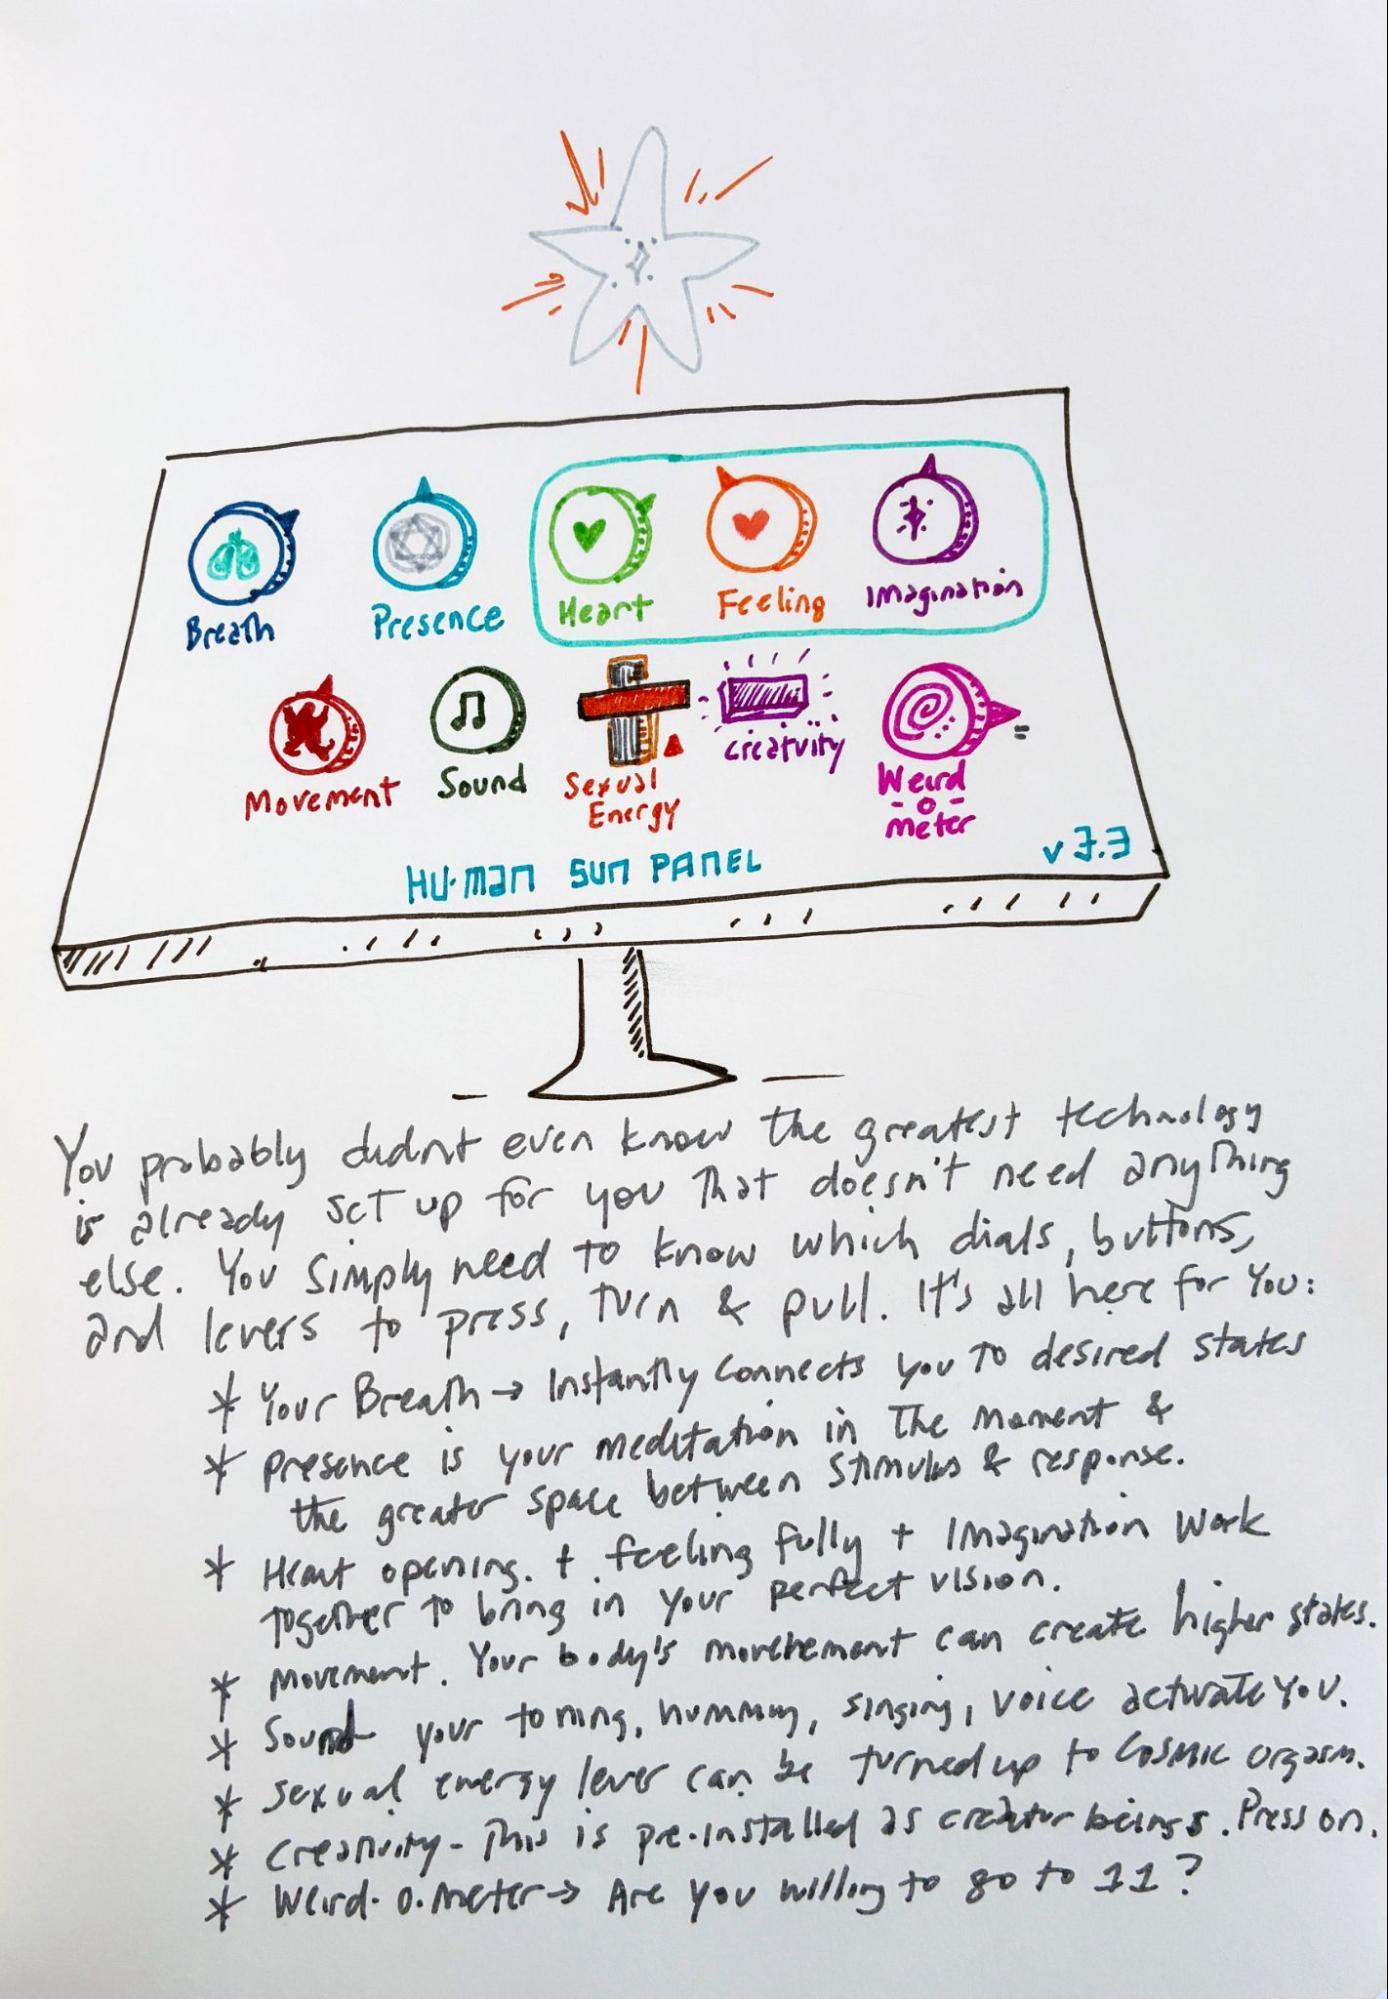 Breath
Presence
Heart
Feeling
Imagination
Movement
Sound
Sexual
Energy
Creativity
Weird
- o -
meter
HU·man Sun Panel
v 3.3
You probably didnt even know the greatest technology
is already set up for you that doesn't need anything
else. You simply need to know which dials, buttons,
and levers to press, turn & pull. It's all here for You:
* Your Breath → Instantly connects you to desired states
* Presence is your meditation in the moment &
the greater space between stimulus & response.
* Heart opening. + feeling fully + Imagination Work
together to bring in Your perfect vision.
* Movement. Your body's movement can create higher states.
* Sound your toning, humming, singing, voice activate You.
* Sexual energy lever can be turned up to Cosmic orgasm.
* Creativity - This is pre-installed as creator beings. Press on.
* Weird. o. meter → Are you willing to go to 11?